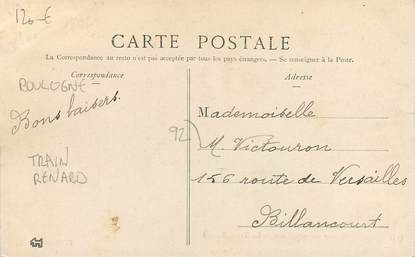 120-€
CARTE POSTALE
La Correspondance au recto n'est pas acceptée par tous les pays étrangers. — Se renseigner à la Poste.
Correspondance
Adresse
BOULOGNE
Bons baisers.
92
TRAIN
RENARD
Mademoiselle
M. Victouron
156 route de Versailles
Billancourt